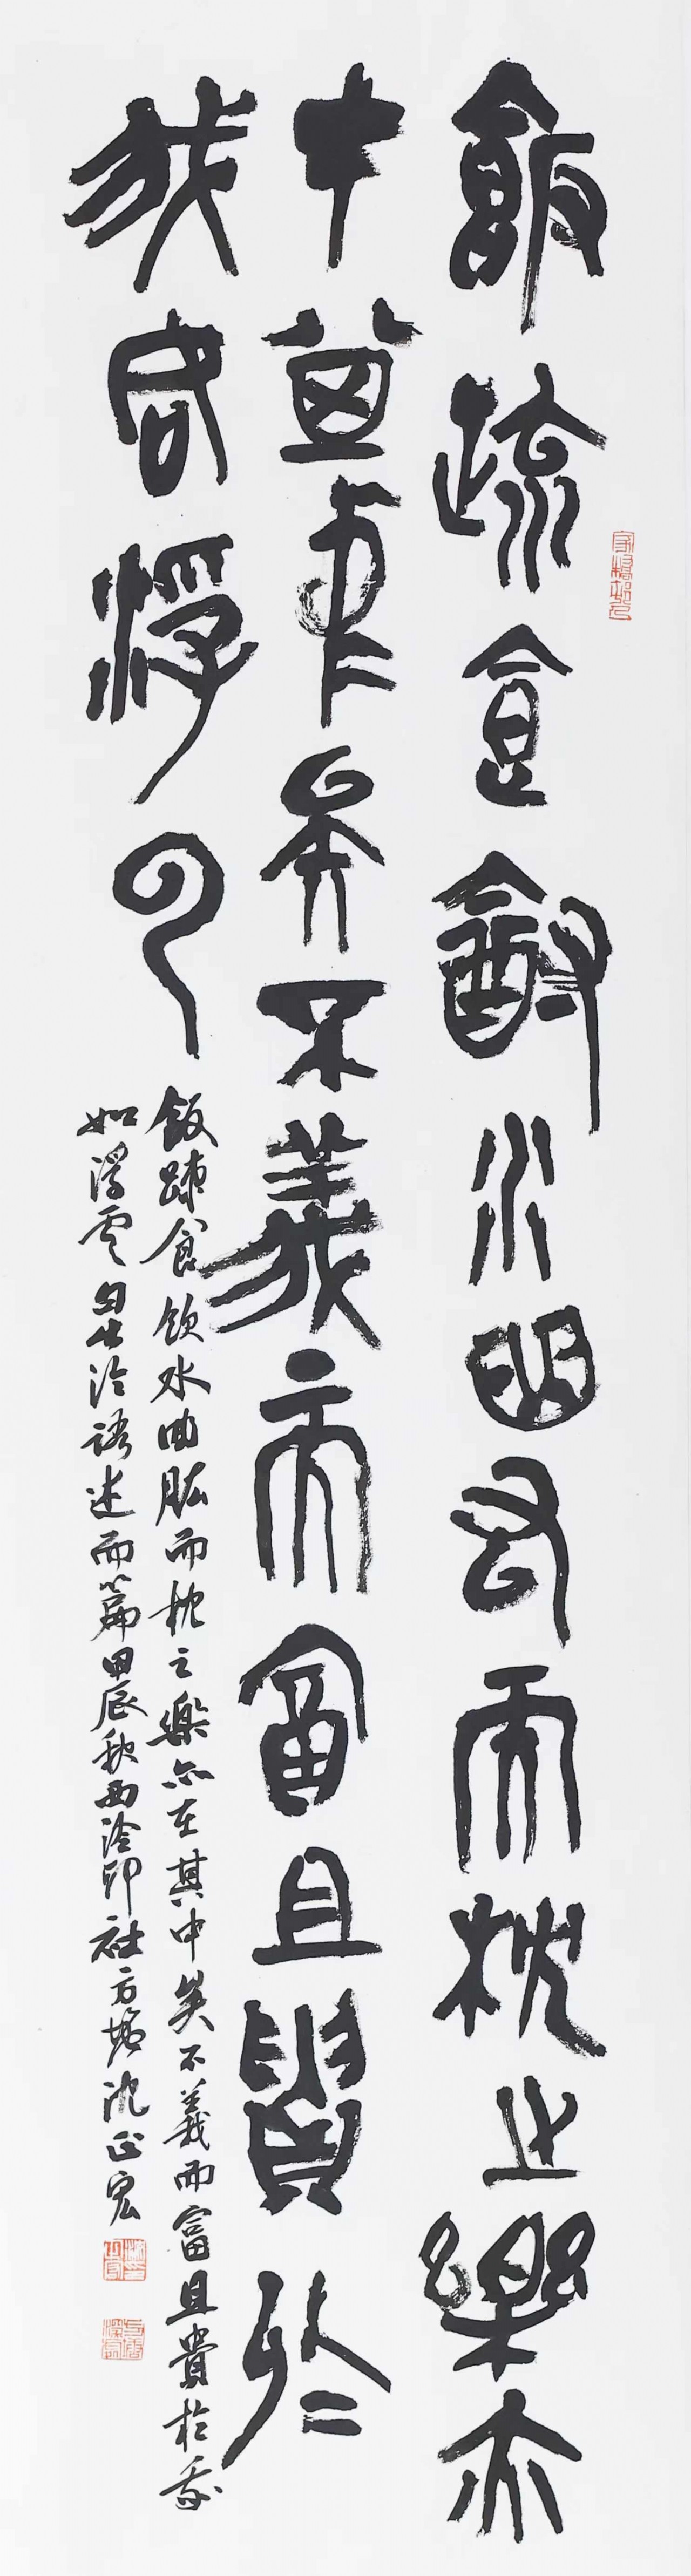 飯疏食飲水曲肱而枕之樂亦
在其中矣不義而富且貴於
我如浮云
飯疎食飲水曲肱而枕之樂亦在其中矣不義而富且貴於我
如浮雲論語述而篇甲辰秋西泠印社方塘沈正宏